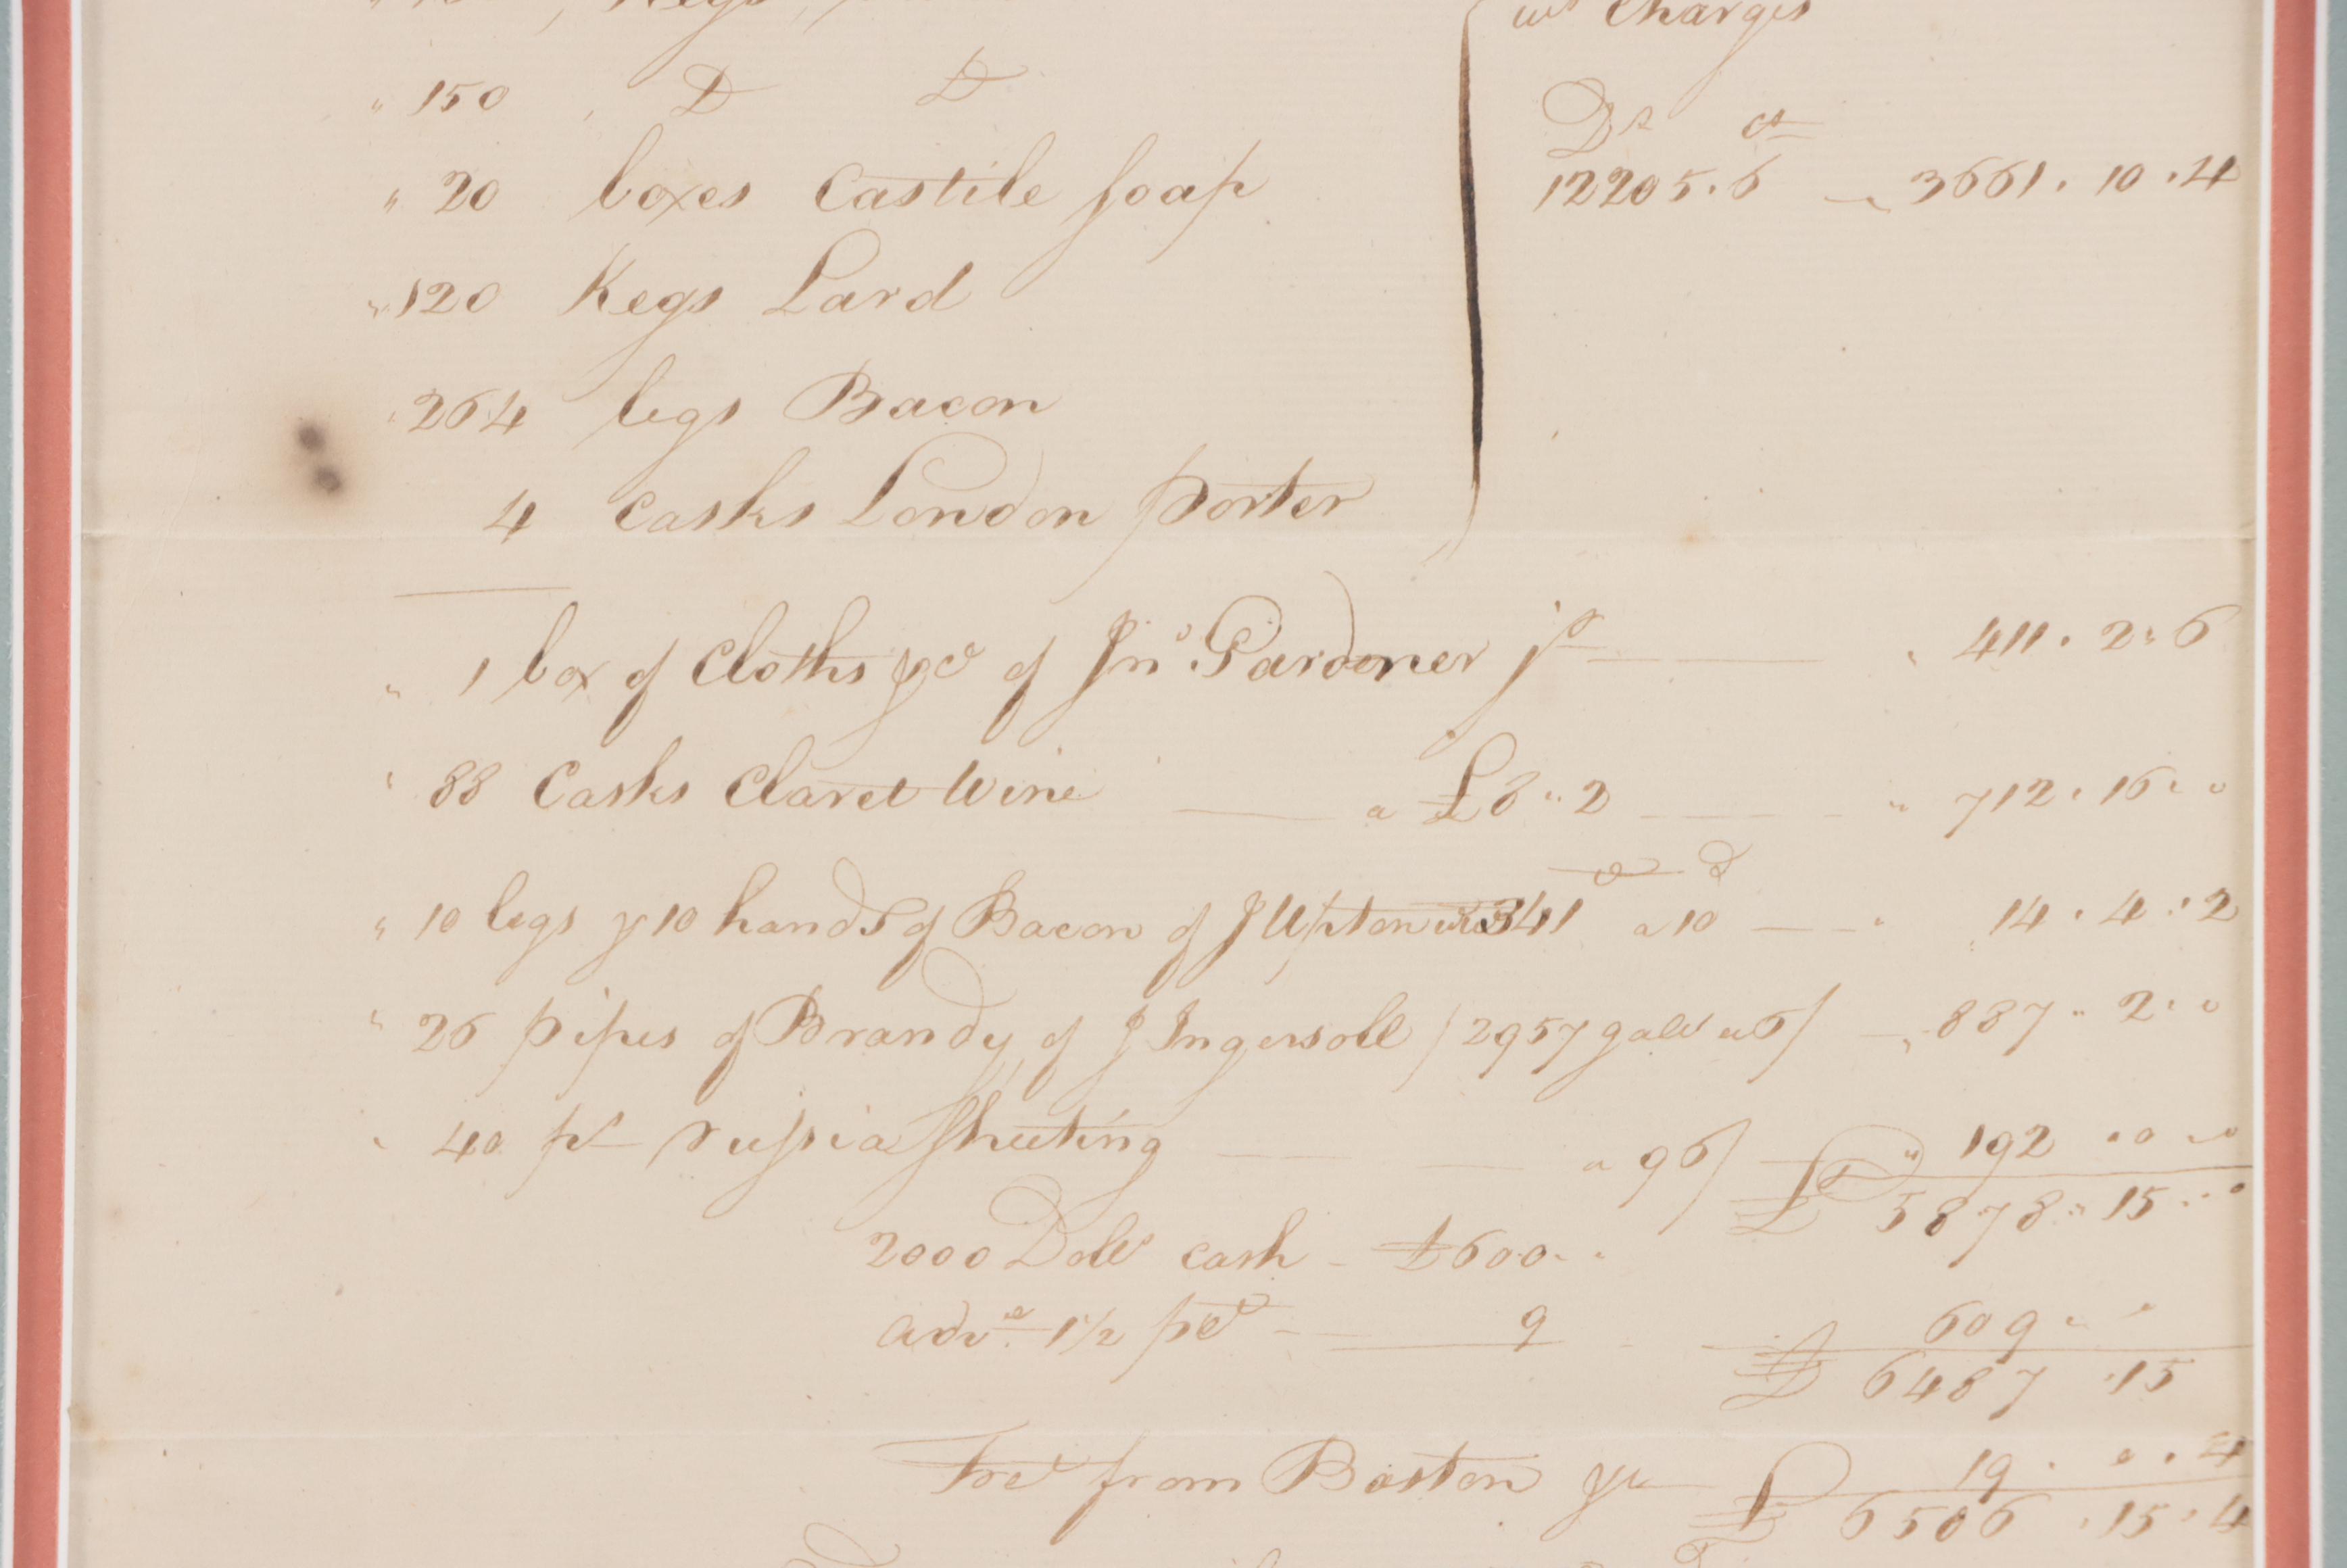 Kegs
ws Charges
" 150 " D D
Ds cts
" 20 boxes Castile soap
12205.6 3661.10.4
" 120 Kegs Lard
264 legs Bacon
4 Casks London porter
" 1 box of Cloths of Jno Gardener jr 411.2.6
" 88 Casks Claret Wine a £8..2 " 712.16.0
" 10 legs & 10 hands of Bacon of J Upton 341 a 10 d 14.4.2
" 26 pipes of Brandy of J Ingersoll /2957 galls a 6/ 887.2.0
" 40 ps russia sheeting a 96/ " 192.0.0
£ 5878.15.0
2000 Dolls cash £600..
adve 1½ pCt 9 609
£ 6487.15
Fret from Boston 19.0.4
£ 6506.15.4